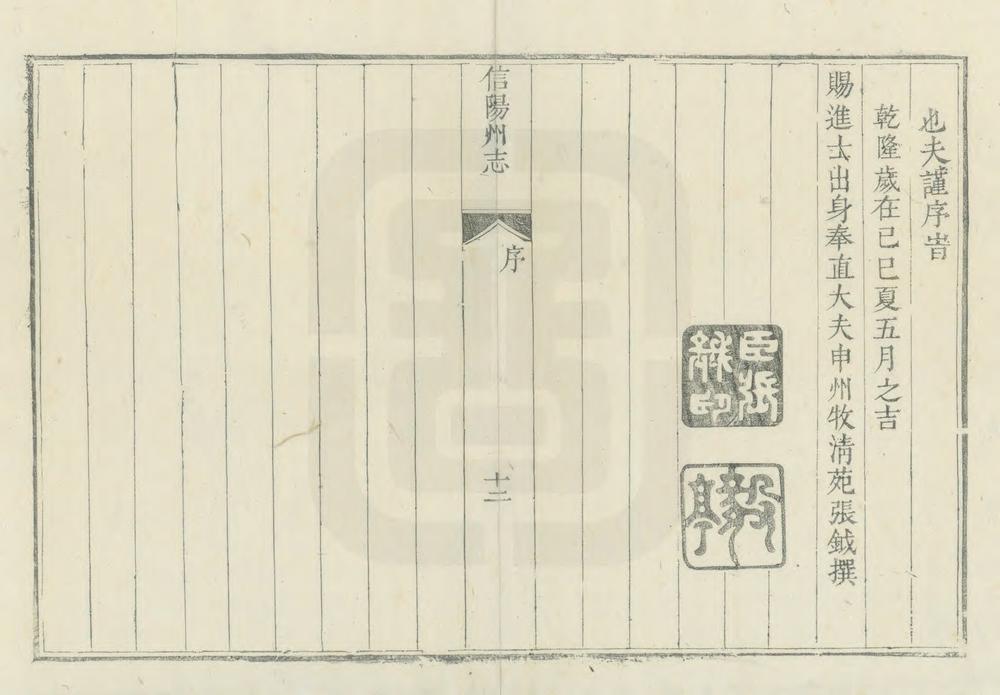 也夫謹序旹
乾隆歲在己巳夏五月之吉
賜進士出身奉直大夫申州牧淸苑張鉞撰
臣張鉞印
毅亭
信陽州志
序
十二